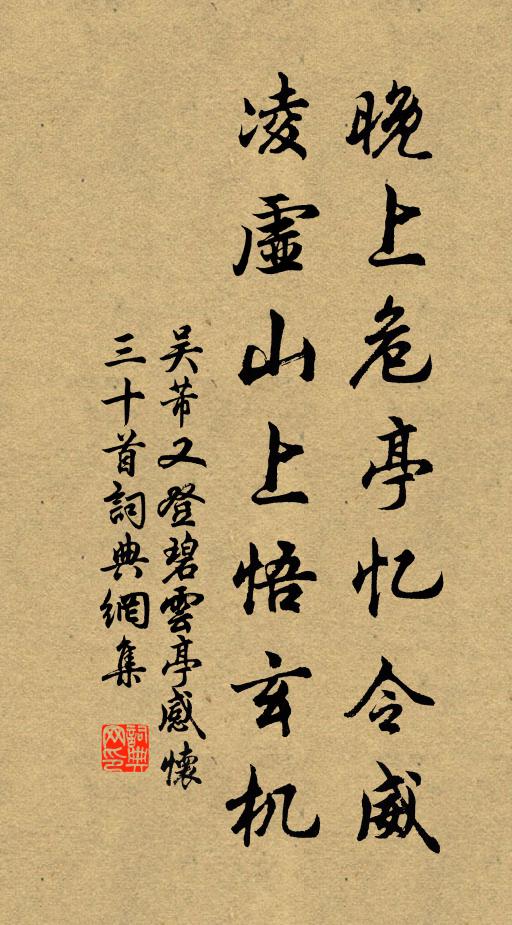 晚上危亭忆令威
凌虛山上悟玄机
吴芾又登碧雲亭感懷
三十首詞典網集
詞典网印